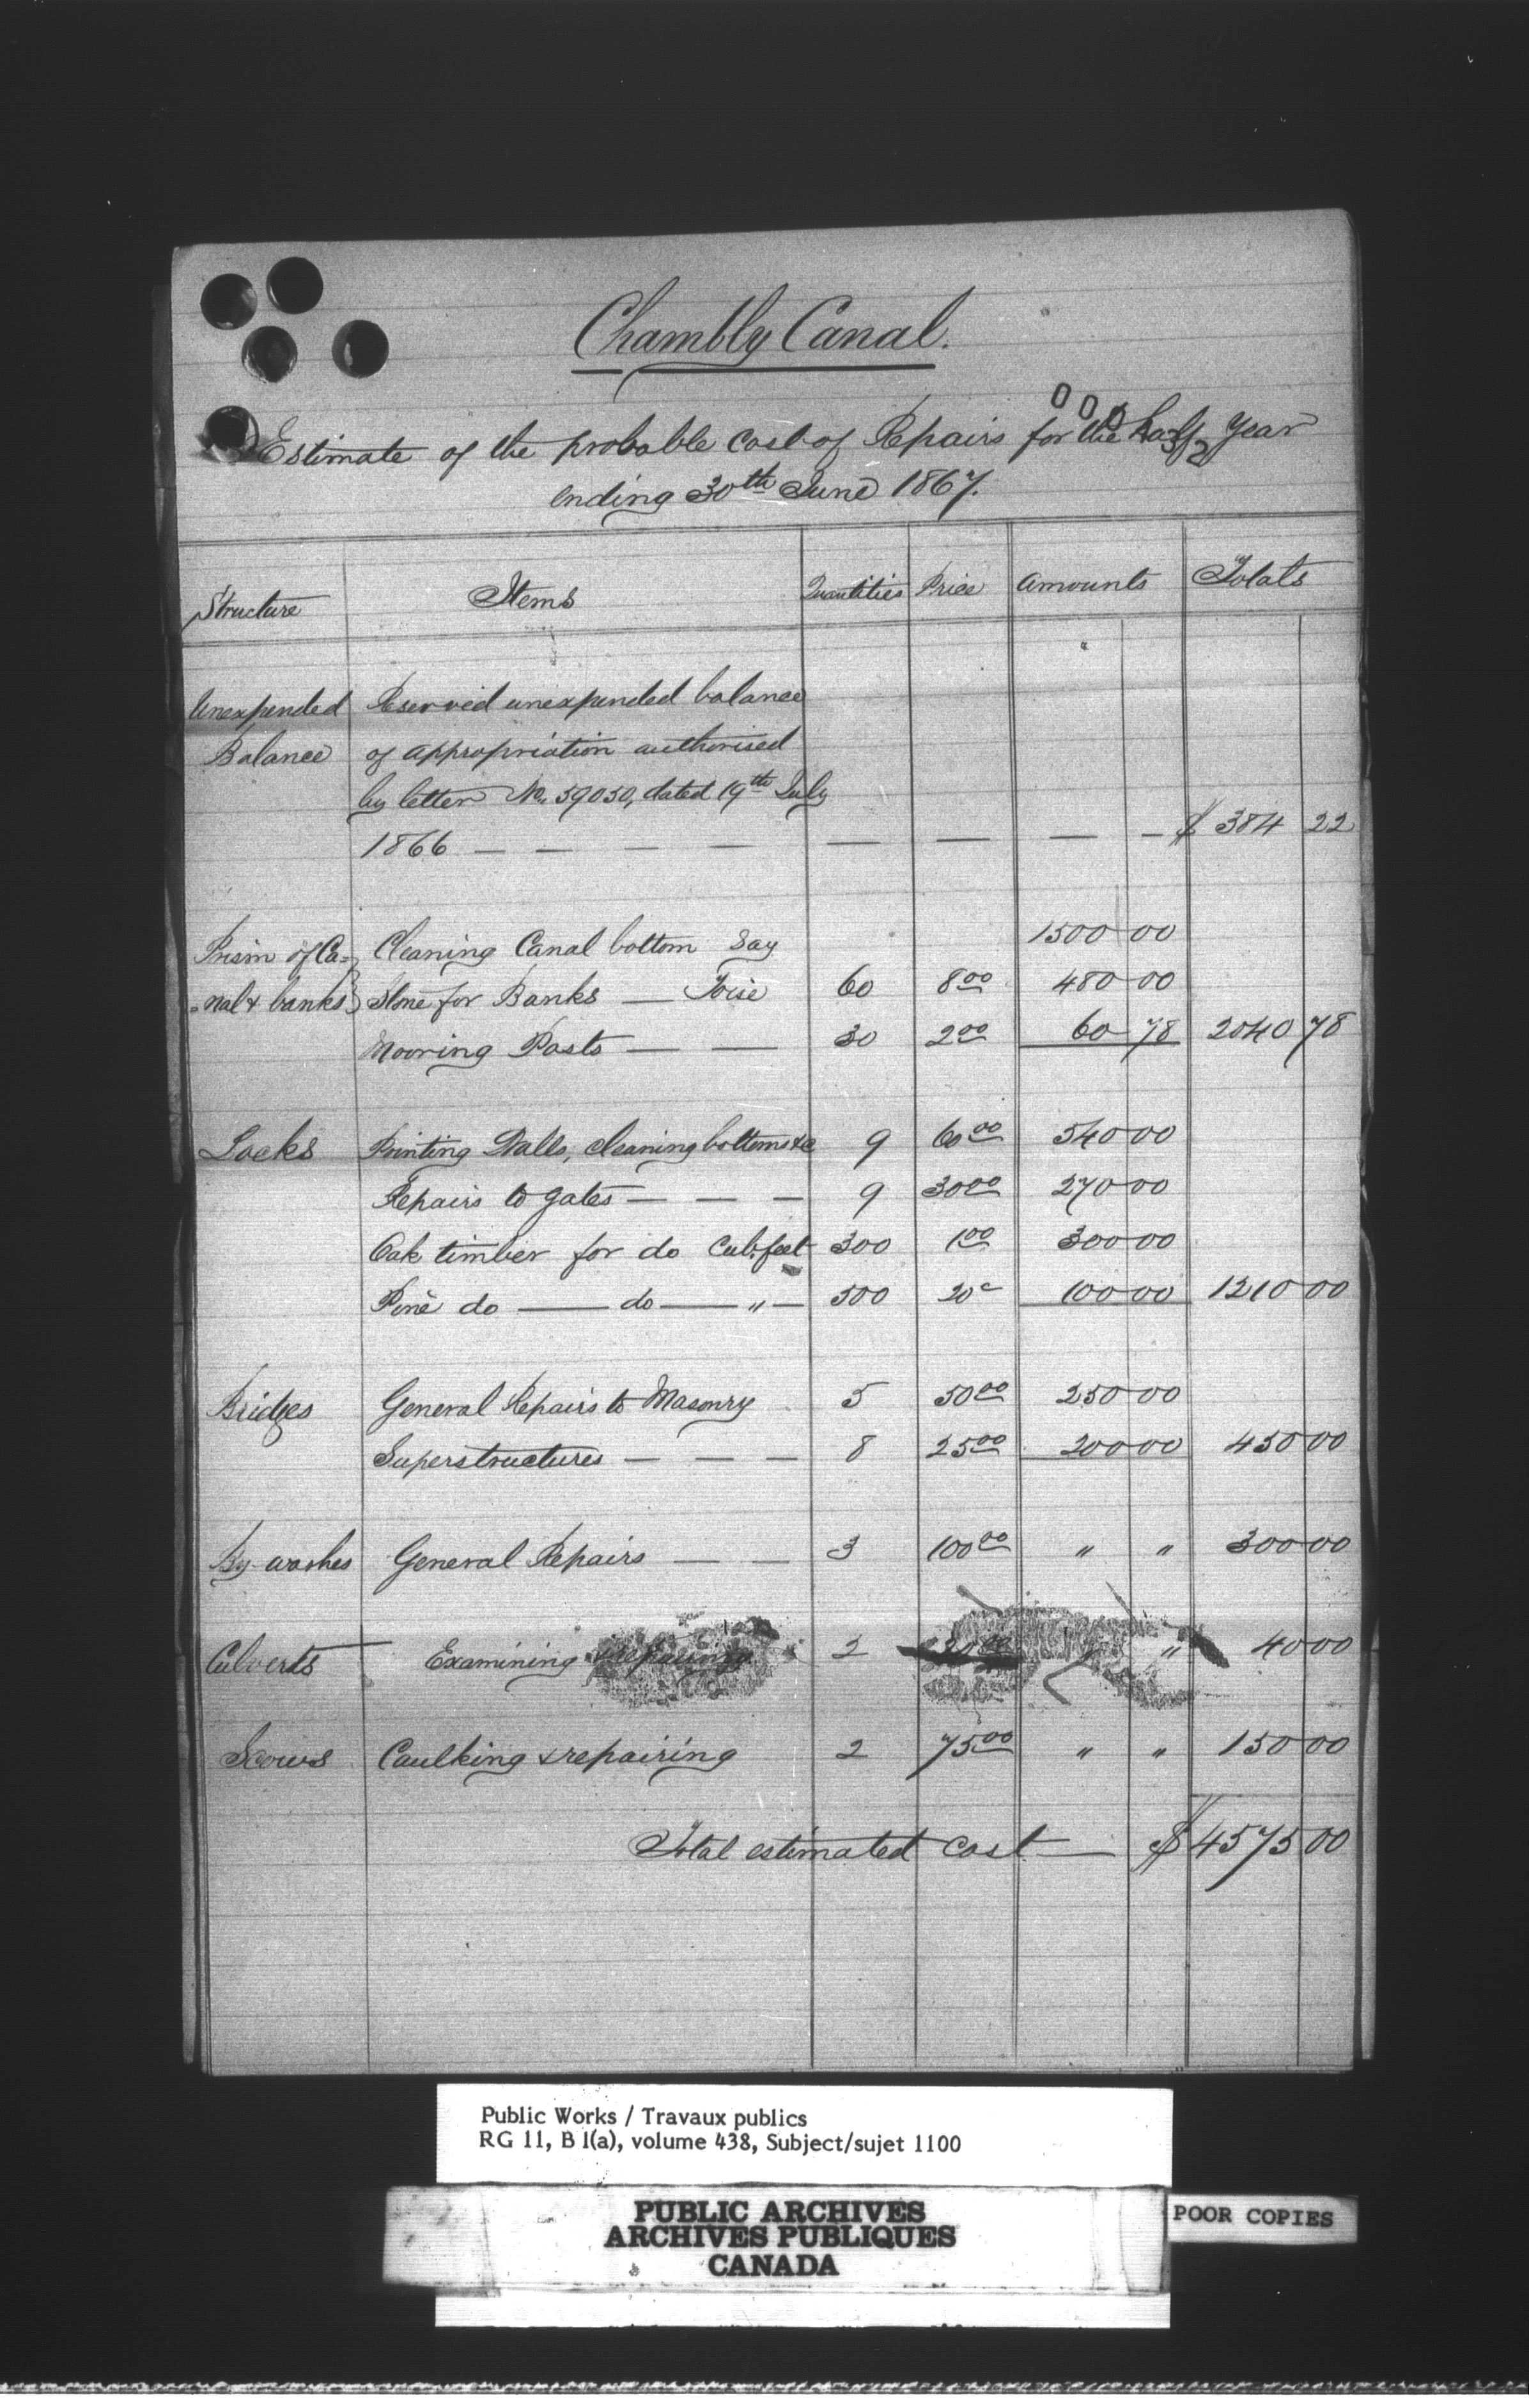 Chambly Canal.
Estimate of the probable cost of Repairs for the half Year
ending 30th June 1867.
Structure Items Quantities Price Amounts Totals
Unexpended Reserved unexpended balance
Balance of appropriation authorised
by letter No. 59050, dated 19th July
1866 — — — — — — — — $ 384 22
Prism of Ca= Cleaning Canal bottom Say 1500 00
=nal & banks Stone for Banks — Toise 60 8 00 480 00
Mooring Posts — — 30 2 00 60 78 2040 78
Locks Pointing Walls, cleaning bottoms &c 9 60 00 540 00
Repairs to gates — — — 9 30 00 270 00
Oak timber for do Cub. feet 300 1 00 300 00
Pine do — do — " — 500 20 c 100 00 1210 00
Bridges General Repairs to Masonry 5 50 00 250 00
Superstructures — — — 8 25 00 200 00 450 00
By-washes General Repairs — — 3 100 00 " " 300 00
Culverts Examining & repairing 2 20 00 " " 40 00
Scows Caulking & repairing 2 75 00 " " 150 00
Total estimated cost — $ 4575 00
Public Works / Travaux publics
RG 11, B 1(a), volume 438, Subject/sujet 1100
PUBLIC ARCHIVES
ARCHIVES PUBLIQUES
CANADA
POOR COPIES